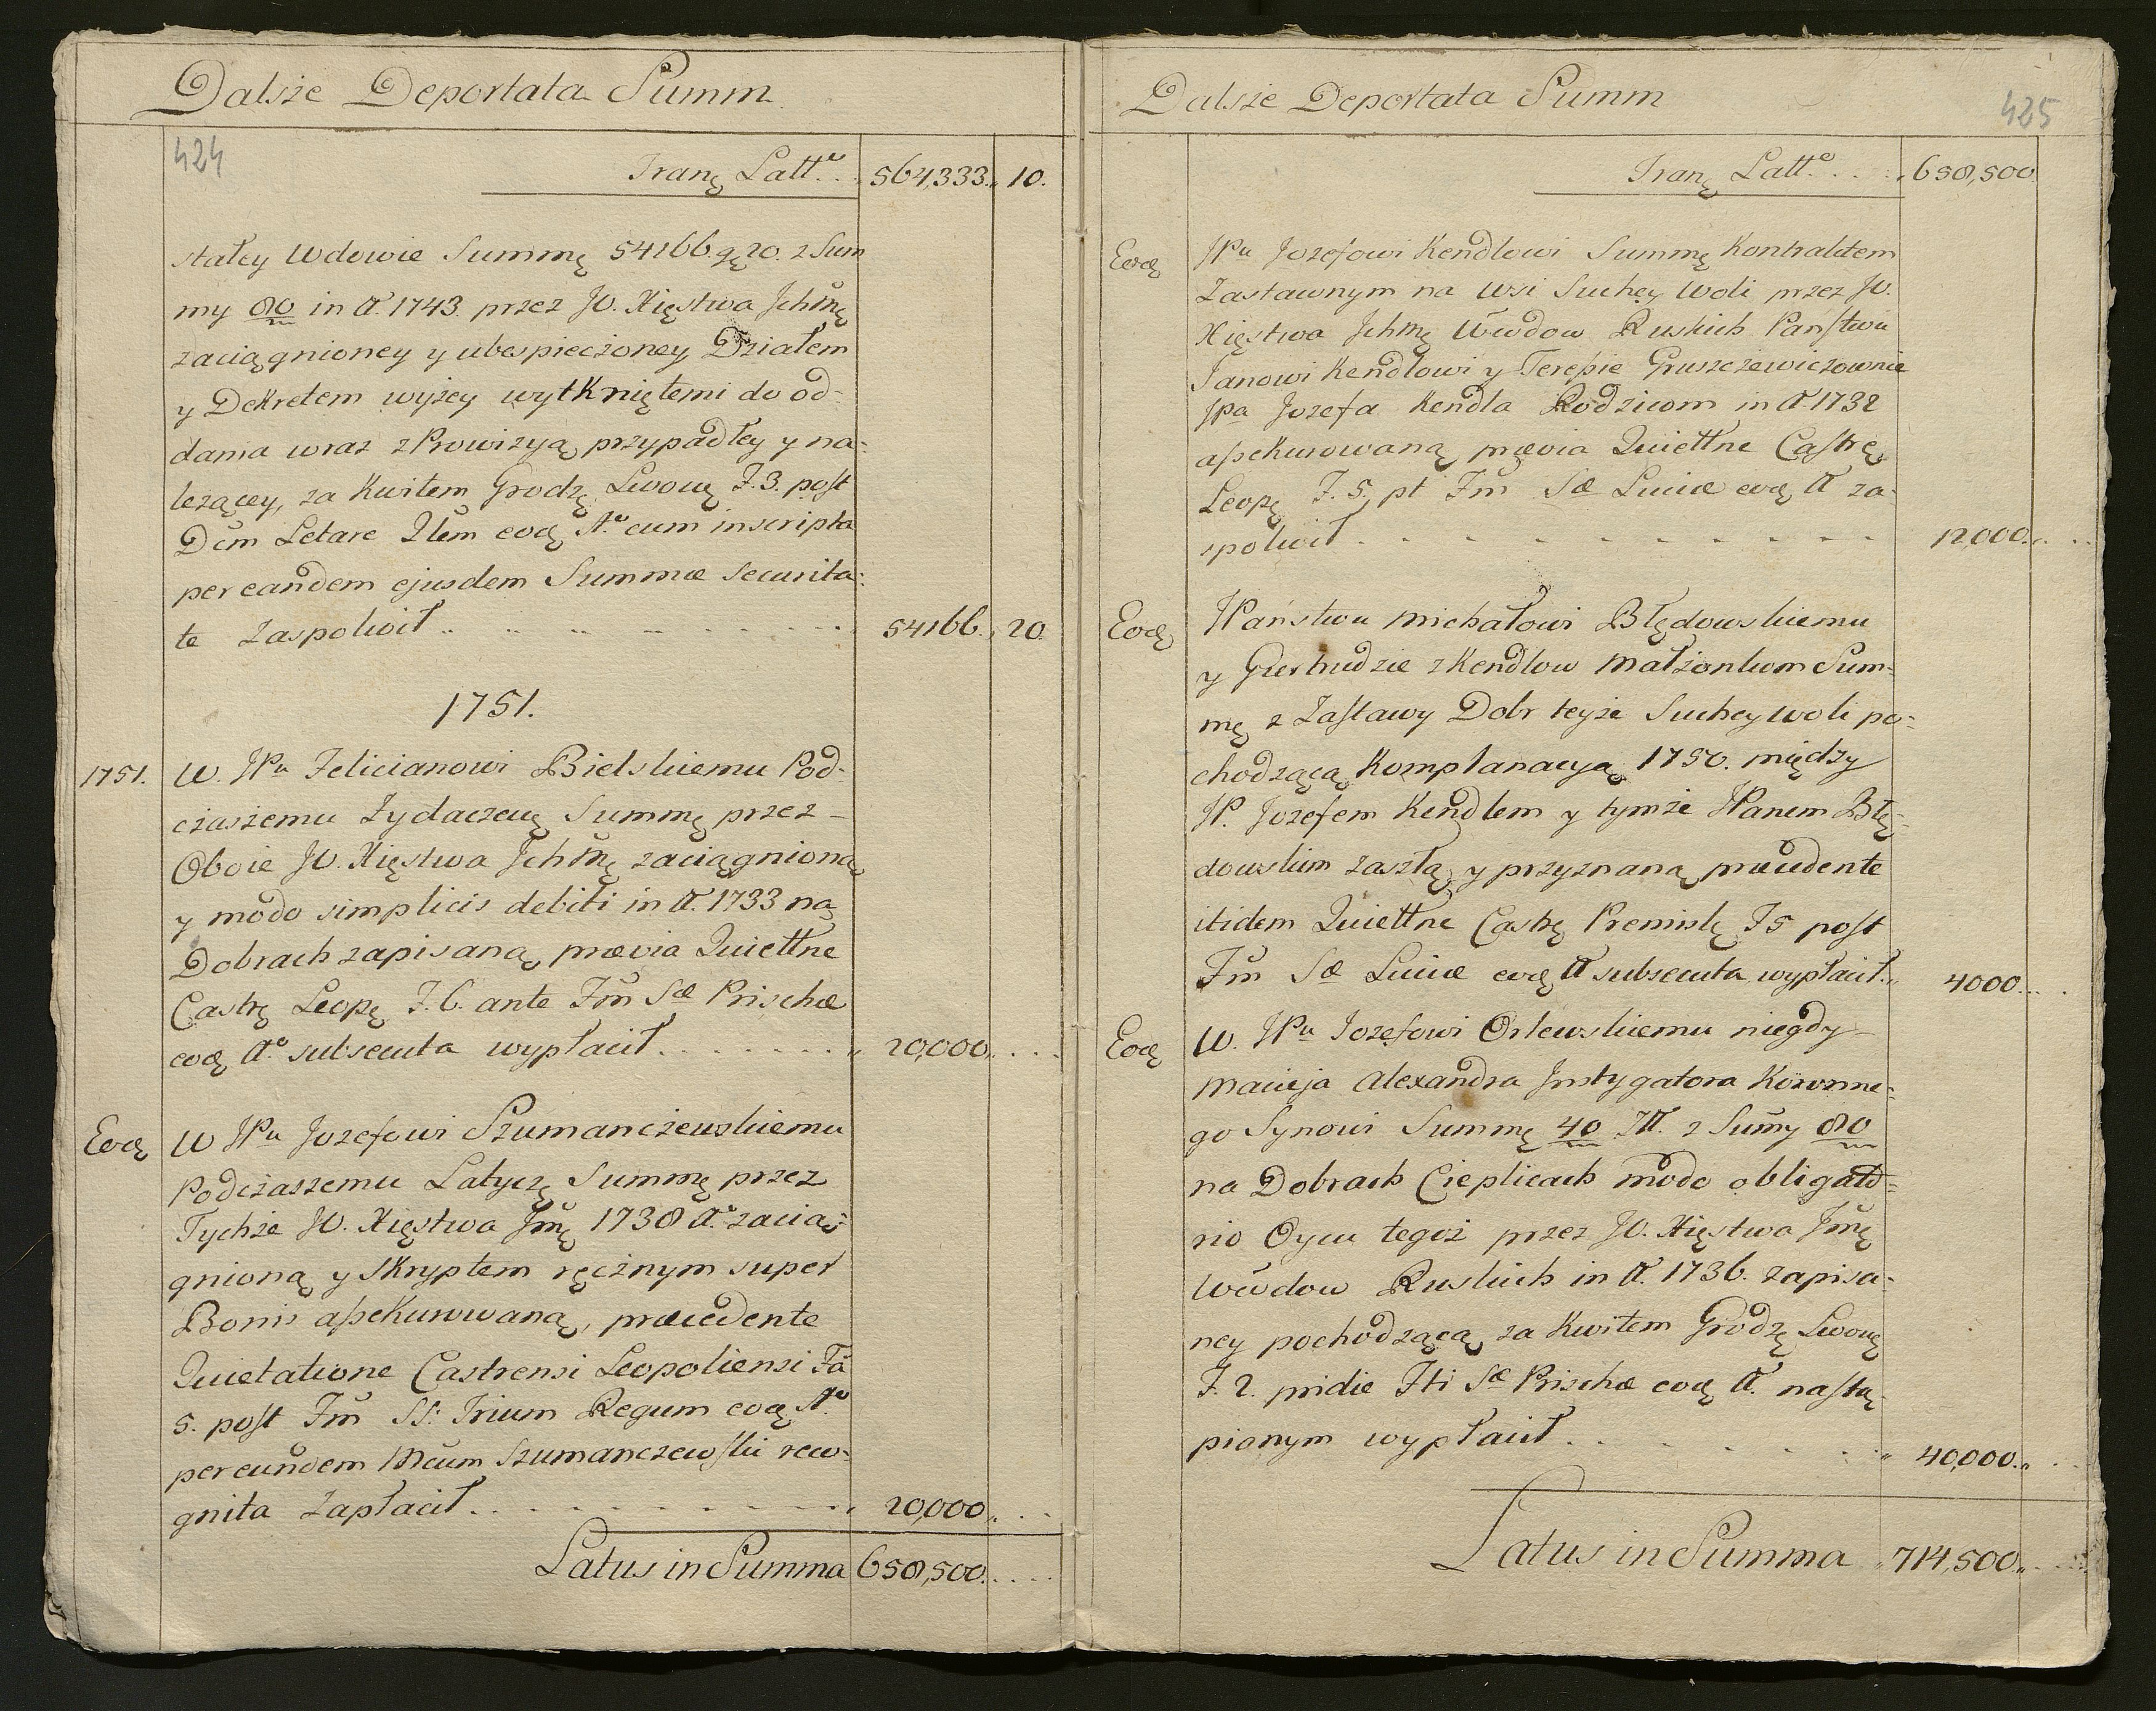 Dalsze Deportata Summ
424
Tranę Latt.e . . 564,333.,, 10.
stałey Wdowie Summę 54166. gę 20. z Sum
my 80 in A. 1743 przez JO. Xięstwa Jchmę
zaciągnioney y ubespieczoney, Działem
y Dekretem wyżey wytkniętemi do od-
dania wraz z Prowizyą przypadłey y na-
leżącey, za Kwitem Grodzę Lwowę F. 3. post
Dcm Letare Qtem eodę A.o cum inscripta
per eandem ejusdem Summæ securita-
te Zaspokoił . . . . . . . 54166.,, 20.
1751.
1751. W. JPu Felicianowi Bielskiemu Pod-
czaszemu Żydaczewę Summę przez
Oboie JO. Xięstwa Jchmę zaciągnioną
y modo simplicis debiti in A. 1733 na
Dobrach zapisaną, prævia Quiettne
Castrę Leopę F. 6. ante Fm Sæ Prischæ
eodę A.o subsecuta wypłacił . . . . . . . 20,000.,, . . .
Eodę W JPu Jozefowi Szumanczewskiemu
Podczaszemu Latyczę Summę przez
Tychże JO. Xięstwa Jmę 1738 A.o zacią-
gnioną y Skryptem ręcznym super
Bonis aſsekurowaną, præcedente
Quietatione Castrensi Leopoliensi Fa
5. poſt Fm SS: Trium Regum eodę A.o
per eundem Mcum Szumanczewſki reco-
gnita Zapłacił . . . . . . . . . 20,000.,, . . .
Latus in Summa 658,500. . . . .
Dalsze Deportata Summ
425
Tranę Latt.e . . . 658,500.
Eodę JPu Jozefowi Kendlowi Summę Kontraktem
Zastawnym na Wsi Suchey Woli przez JO.
Xięstwa Jchmę Wwdow Ruskich Panſtwu
Janowi Kendlowi y Tereſsie Gruszczewiczownie
JPa Jozefa Kendla Rodzicom in A. 1732
aſsekurowaną prævia Quiettne Caſtrę
Leopę F. 5. pt Fm Sæ Luciæ eodę A za-
spokoił . . . . . . . . . . 12,000.,, . .
Eodę JPaństwu Michałowi Błędowskiemu
y Giertrudzie z Kendlow Małżonkom Sum-
mę z Zaſtawy Dobr teyże Suchey Woli po-
chodzącą, Komplanacyą 1750. między
JP. Jozefem Kendlem y tymże JPanem Błę-
dowskim zaszłą, y przyznaną præcedente
itidem Quiettne Castrę Premislę F 5 poſt
Fm Sæ Luciæ eodę A subsecuta wypłacił.,, 4000. . . .
Eodę W. JPu Jozefowi Orlewskiemu niegdy
Macieja Alexandra Jnstygatora Koronne-
go Synowi Summę 40 Zł. z Sumy 80
na Dobrach Cieplicach modo obligato-
rio Oycu tegoż przez JO. Xięstwa Jmę
Wwdow Ruskich in A. 1736. zapisa-
ney pochodzącą, za Kwitem Grodzę Lwowę
F. 2. pridie Fti Sæ Prischæ eodę A. naſtą-
pionym wypłacił . . . . . . . .,, 40,000.,, . .
Latus in Summa ,, 714,500.,, . . .